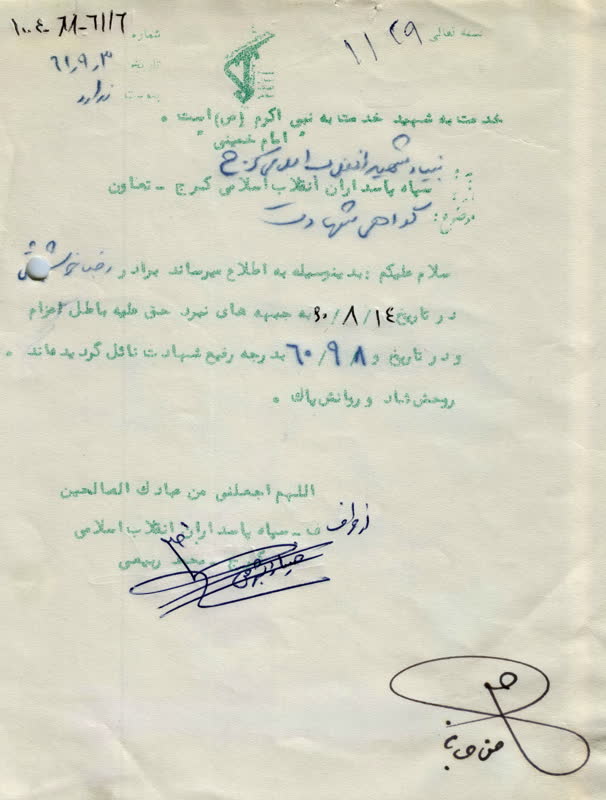 بسمه تعالی
۱۱۲۹
شماره ۱۰۰۴-۶۸-۶۱/۶
تاریخ ۶۱,۹,۳
پیوست ندارد
خدمت به شهید خدمت به نبی اکرم (ص) است .
" امام خمینی "
به : بنیاد شهید انقلاب اسلامی کرج
از : سپاه پاسداران انقلاب اسلامی کرج - تعاون
موضوع : گواهی شهادت
سلام علیکم : بدینوسیله به اطلاع میرساند برادر رضا
در تاریخ ۶۰/۸/۱۴ به جبهه های نبرد حق علیه باطل اعزام
و در تاریخ ۶۰/۹/۸ بدرجه رفیع شهادت نائل گردیده‌اند .
روحش شاد و روانش پاک .
اللهم اجعلنی من عبادک الصالحین
از طرف ف - سپاه پاسداران انقلاب اسلامی
کرج - محمد ربیعی